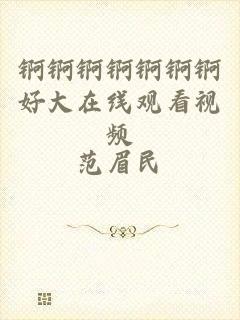 锕锕锕锕锕锕锕
好大在线观看视
频
范眉民